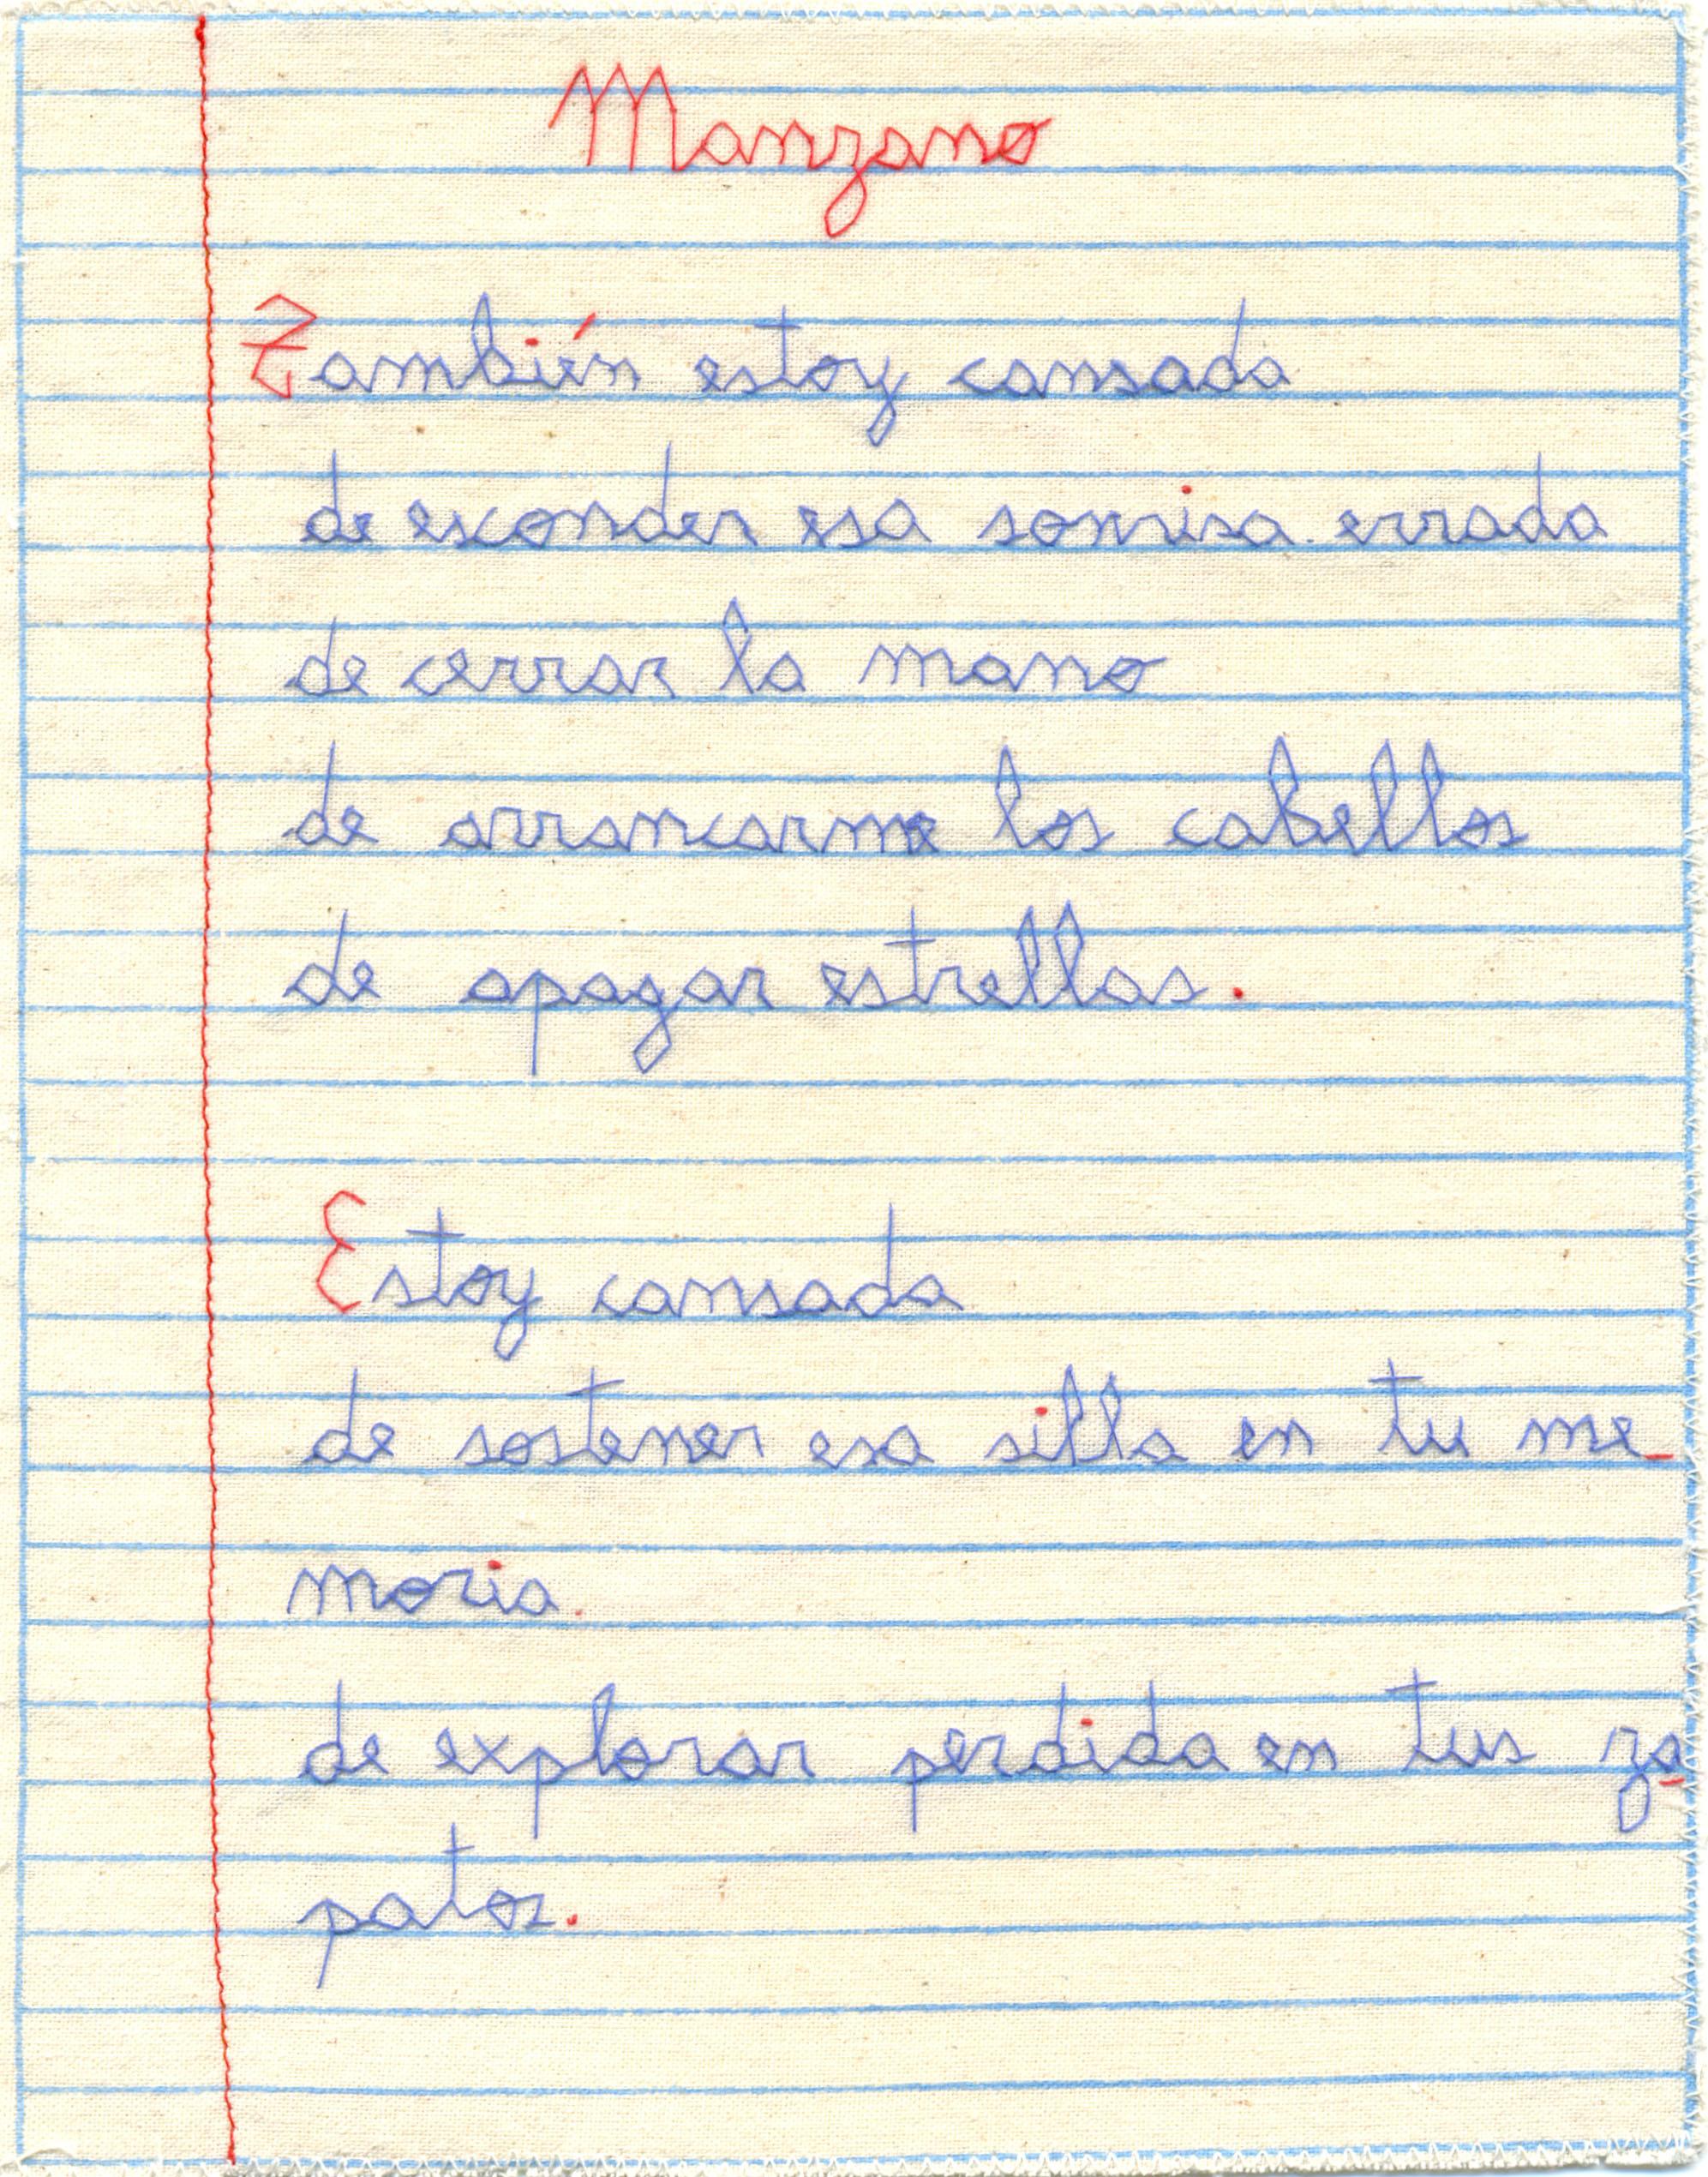 Manzano
También estoy cansada
de esconder esa sonrisa errada
de cerrar la mano
de arrancarme los cabellos
de apagar estrellas.
Estoy cansada
de sostener esa silla en tu me_
moria.
de explorar perdida en tus za_
patos.